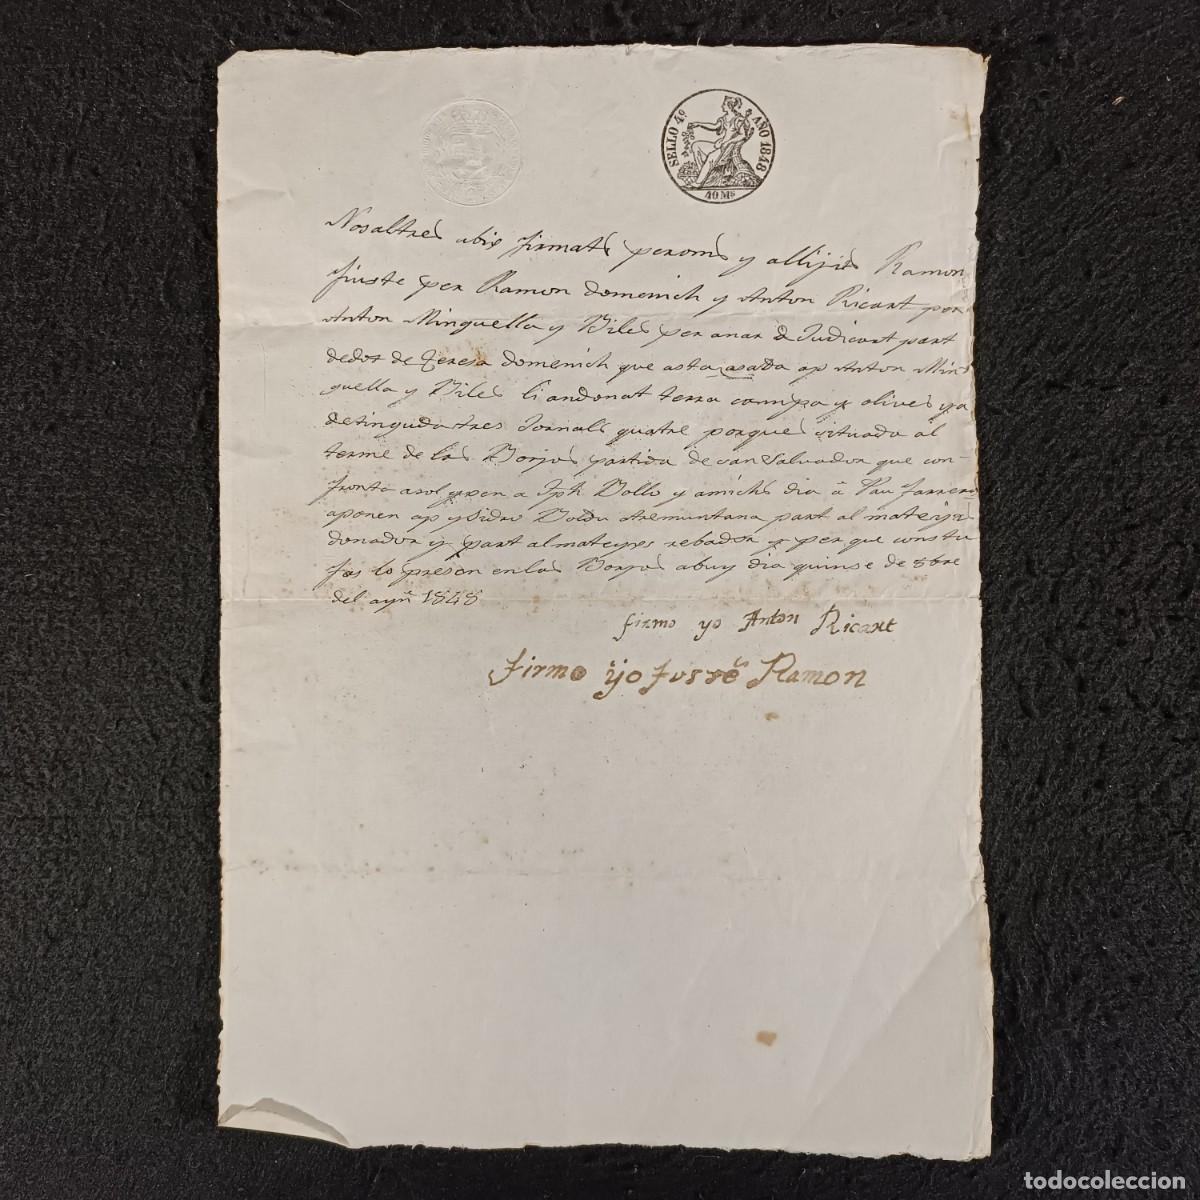 SELLO 4º AÑO 1848
40 Ms
Nosaltres abix firmats peroms y allijits Ramon
Juste per Ramon domenich y Anton Ricart per
Anton Minguella y Biles per anar a Judicart part
dedot de teresa domenich que asta asada ap Anton Min
guella y Biles li andonat terra campa y olives ya
detinguda tres Jornals quatre porques situada al
terme de las Borjas partida de san Salvador que con-
fronta a sol yxen a Jph Bollo y amichs dia a Pau farrero
aponen ap ysidro Boldu tremuntana part al mateix
donador y part al mateyxs rebador y per que constu
fas lo presen en las Borjas abuy dia quinse de 8bre
del ayñ 1848
firmo yo Anton Ricart
firmo yo Jussé Ramon
todocoleccion